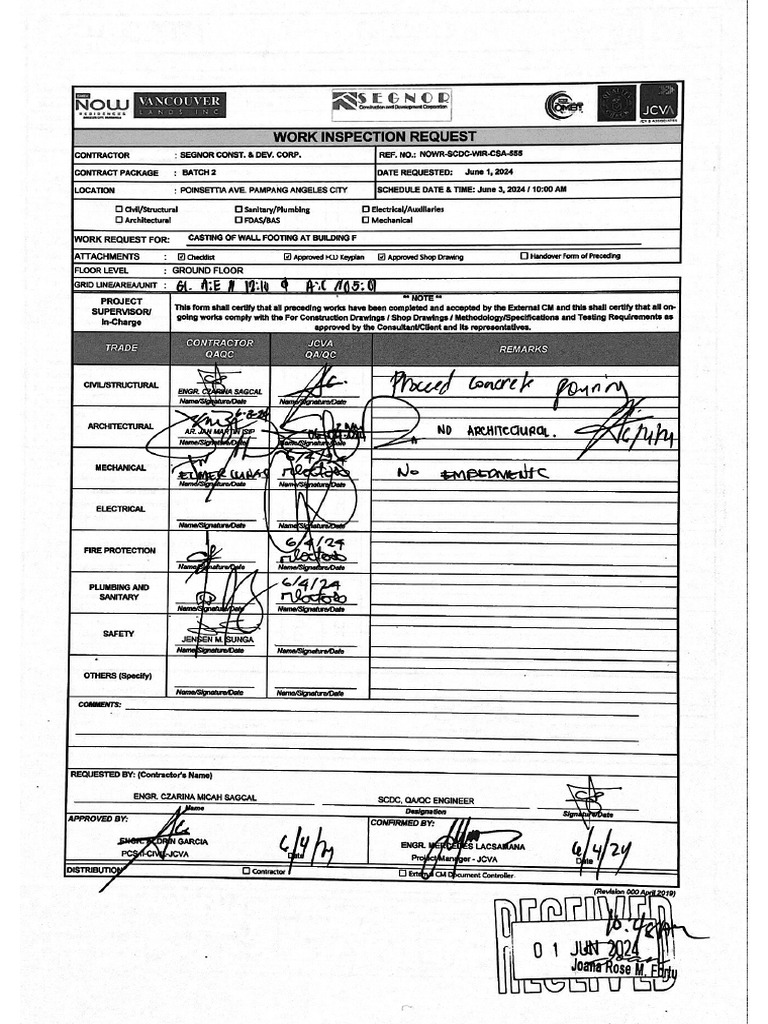 NOW
RESIDENCES
VANCOUVER
LANDS INC
SEGNOR
Construction and Development Corporation
JCVA
WORK INSPECTION REQUEST
CONTRACTOR : SEGNOR CONST. & DEV. CORP. REF. NO.: NOWR-SCDC-WIR-CSA-555
CONTRACT PACKAGE : BATCH 2 DATE REQUESTED: June 1, 2024
LOCATION : POINSETTIA AVE. PAMPANG ANGELES CITY SCHEDULE DATE & TIME: June 3, 2024 / 10:00 AM
☐ Civil/Structural ☐ Sanitary/Plumbing ☐ Electrical/Auxiliaries
☐ Architectural ☐ FDAS/BAS ☐ Mechanical
WORK REQUEST FOR: CASTING OF WALL FOOTING AT BUILDING F
ATTACHMENTS : ☑ Checklist ☑ Approved Keyplan ☑ Approved Shop Drawing ☐ Handover Form of Preceding
FLOOR LEVEL : GROUND FLOOR
GRID LINE/AREA/UNIT :
PROJECT SUPERVISOR/ In-Charge
** NOTE **
This form shall certify that all preceding works have been completed and accepted by the External CM and this shall certify that all on-
going works comply with the For Construction Drawings / Shop Drawings / Methodology/Specifications and Testing Requirements as
approved by the Consultant/Client and its representatives.
TRADE CONTRACTOR QAQC JCVA QA/QC REMARKS
CIVIL/STRUCTURAL ENGR. CZARINA SAGCAL Proceed concrete pouring
Name/Signature/Date Name/Signature/Date
ARCHITECTURAL AR. JAN MARTIN SIP NO ARCHITECTURAL.
Name/Signature/Date Name/Signature/Date
MECHANICAL ELMER 6/4/24 No
Name/Signature/Date Name/Signature/Date
ELECTRICAL
Name/Signature/Date Name/Signature/Date
FIRE PROTECTION 6/4/24
Name/Signature/Date Name/Signature/Date
PLUMBING AND SANITARY 6/4/24
Name/Signature/Date Name/Signature/Date
SAFETY JENSEN M. SUNGA
Name/Signature/Date Name/Signature/Date
OTHERS (Specify)
Name/Signature/Date Name/Signature/Date
COMMENTS:
REQUESTED BY: (Contractor's Name)
ENGR. CZARINA MICAH SAGCAL SCDC, QA/QC ENGINEER
Name Designation Signature/Date
APPROVED BY: CONFIRMED BY:
GARCIA 6/4/24 ENGR. MERCEDES LACSAMANA 6/4/24
Date Project Manager - JCVA Date
DISTRIBUTION ☐ Contractor ☐ External CM Document Controller
(Revision 000 April 2019)
RECEIVED
01 JUN 2024
Joana Rose M.